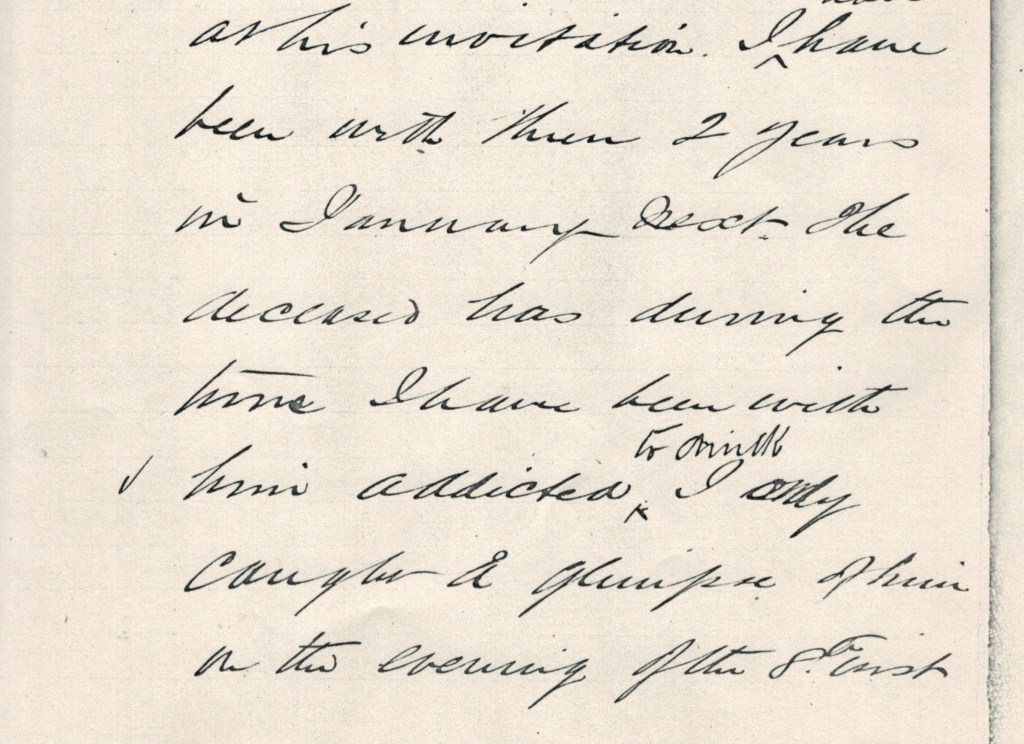 at his invitation. I have
been with them 2 years
in January next. The
deceased has during the
time I have been with
to drink
him addicted I only
caught a glimpse of him
on the evening of the 8th inst